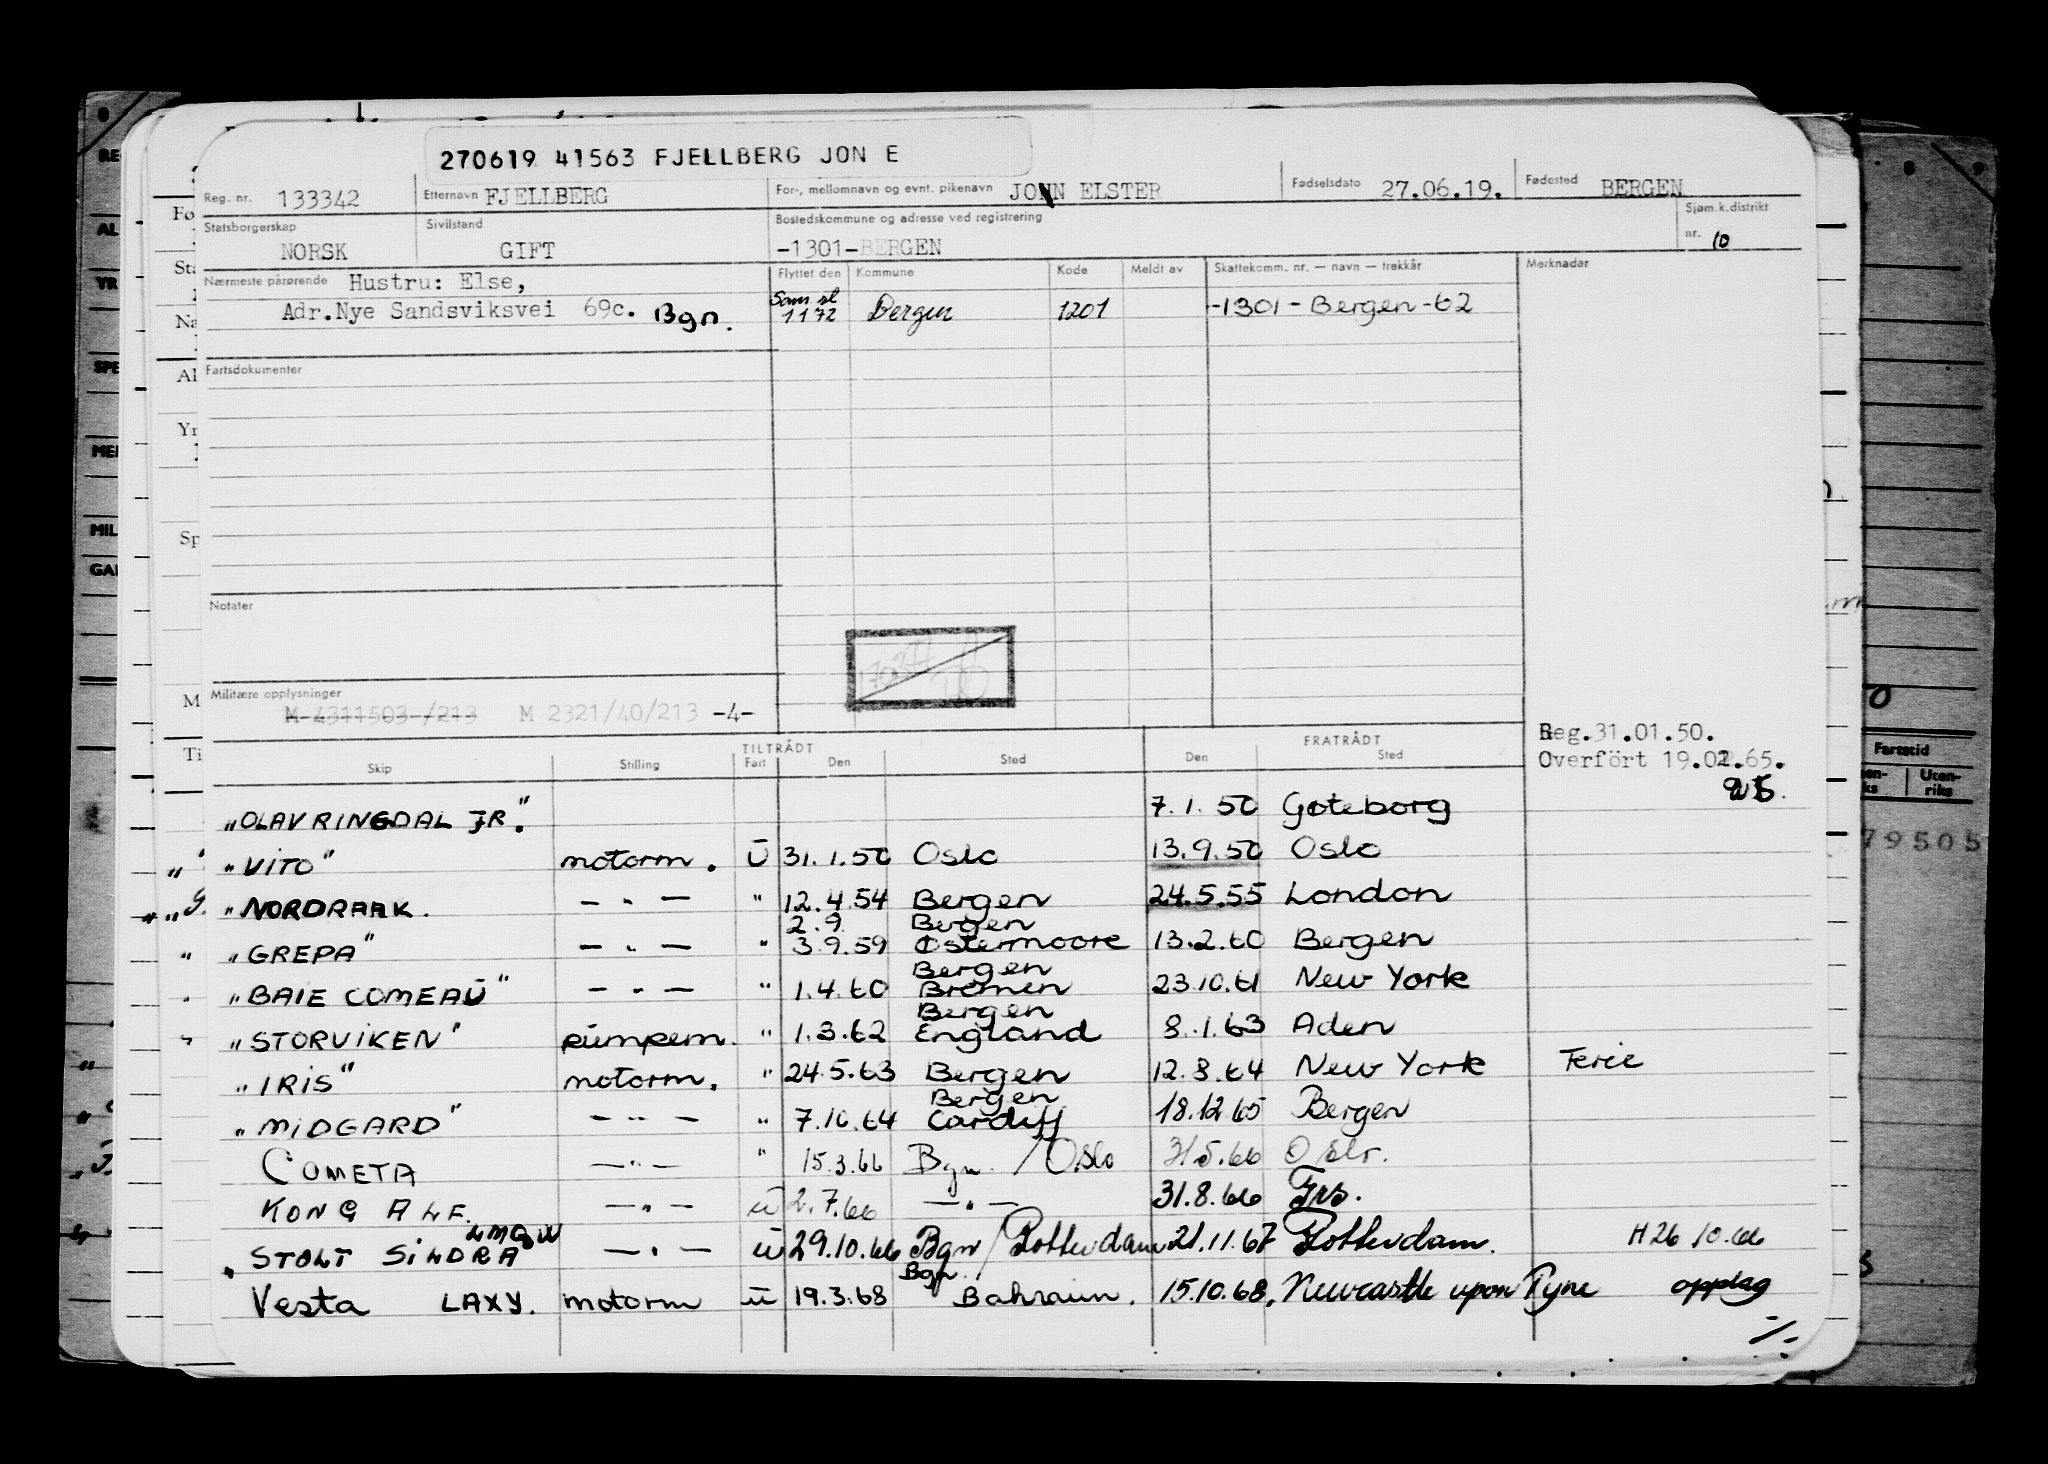 270619 41563 FJELLBERG JON E
Reg. nr. 133342 Etternavn FJELLBERG For-, mellomnavn og evnt. pikenavn JON ELSTER Fødselsdato 27.06.19. Fødested BERGEN
Statsborgerskap NORSK Sivilstand GIFT Bostedskommune og adresse ved registrering -1301-BERGEN Sjøm.k.distrikt nr. 10
Nærmeste pårørende Hustru: Else, Flyttet den Kommune Kode Meldt av Skattekomm. nr. — navn — trekkår Merknader
Adr.Nye Sandsviksvei 69c. Bgn. 1172 Bergen 1201 -1301-Bergen-62
Fartsdokumenter
Notater
Militære opplysninger
M-4311503-/213 M 2321/40/213 -4-
Reg.31.01.50.
Overfört 19.02.65.
TILTRÅDT FRATRÅDT
Skip Stilling Fart Den Sted Den Sted
"OLAV RINGDAL JR." 7.1.50 Gøteborg
"VITO" motorm. U 31.1.50 Oslo 13.9.50 Oslo
"NORDRAAK. — " — " 12.4.54 Bergen 24.5.55 London
2.9. Bergen
"GREPA" — " — " 3.9.59 Ostermoore 13.2.60 Bergen
Bergen
"BAIE COMEAU" — " — " 1.4.60 Bremen 23.10.61 New York
Bergen
"STORVIKEN" pumpem. " 1.3.62 England 8.1.63 Aden
"IRIS" motorm. " 24.5.63 Bergen 12.8.64 New York Ferie
Bergen
"MIDGARD" — " — " 7.10.64 Cardiff 18.12.65 Bergen
COMETA — " — " 15.3.66 Bgn. / Oslo 31.5.66 Oslo.
KONG ALF. — " — U 2.7.66 — " — 31.8.66
LMQW
STOLT SILDRA — " — U 29.10.66 Bgn / Rotterdam 21.11.67 Rotterdam. H 26 10.66
Bgn.
Vesta LAXY. motorm U 19.3.68 Bahrain. 15.10.68, Newcastle upon Tyne opplag
Fartstid
Uten-
riks
79505